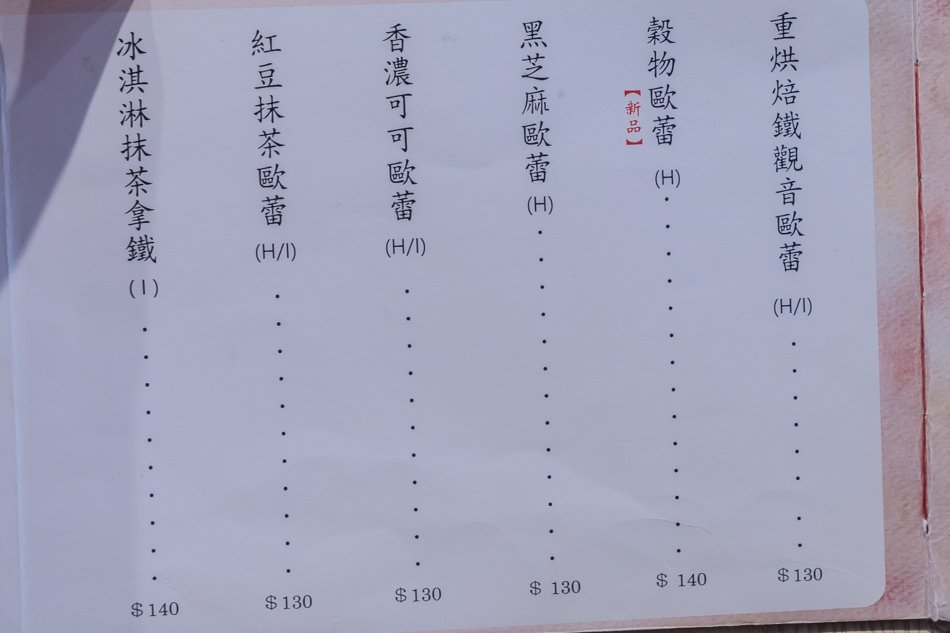 重烘焙鐵觀音歐蕾 (H/I) $130
穀物歐蕾 (H) $140
【新品】
黑芝麻歐蕾 (H) $130
香濃可可歐蕾 (H/I) $130
紅豆抹茶歐蕾 (H/I) $130
冰淇淋抹茶拿鐵 (I) $140